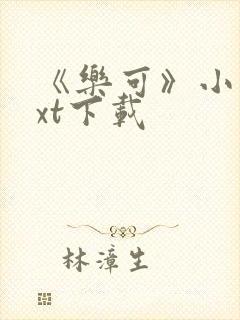 《樂可》小
xt下載
林漳生